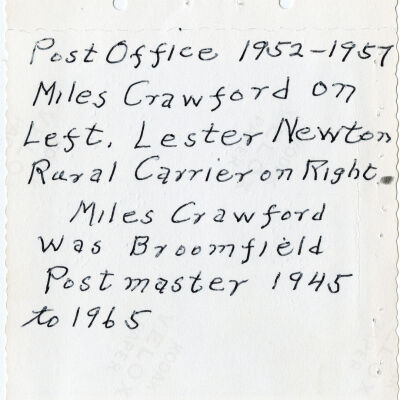 Post Office 1952-1957
Miles Crawford on
Left. Lester Newton
Rural Carrier on Right.
Miles Crawford
was Broomfield
Postmaster 1945
to 1965
VELOX
KODAK